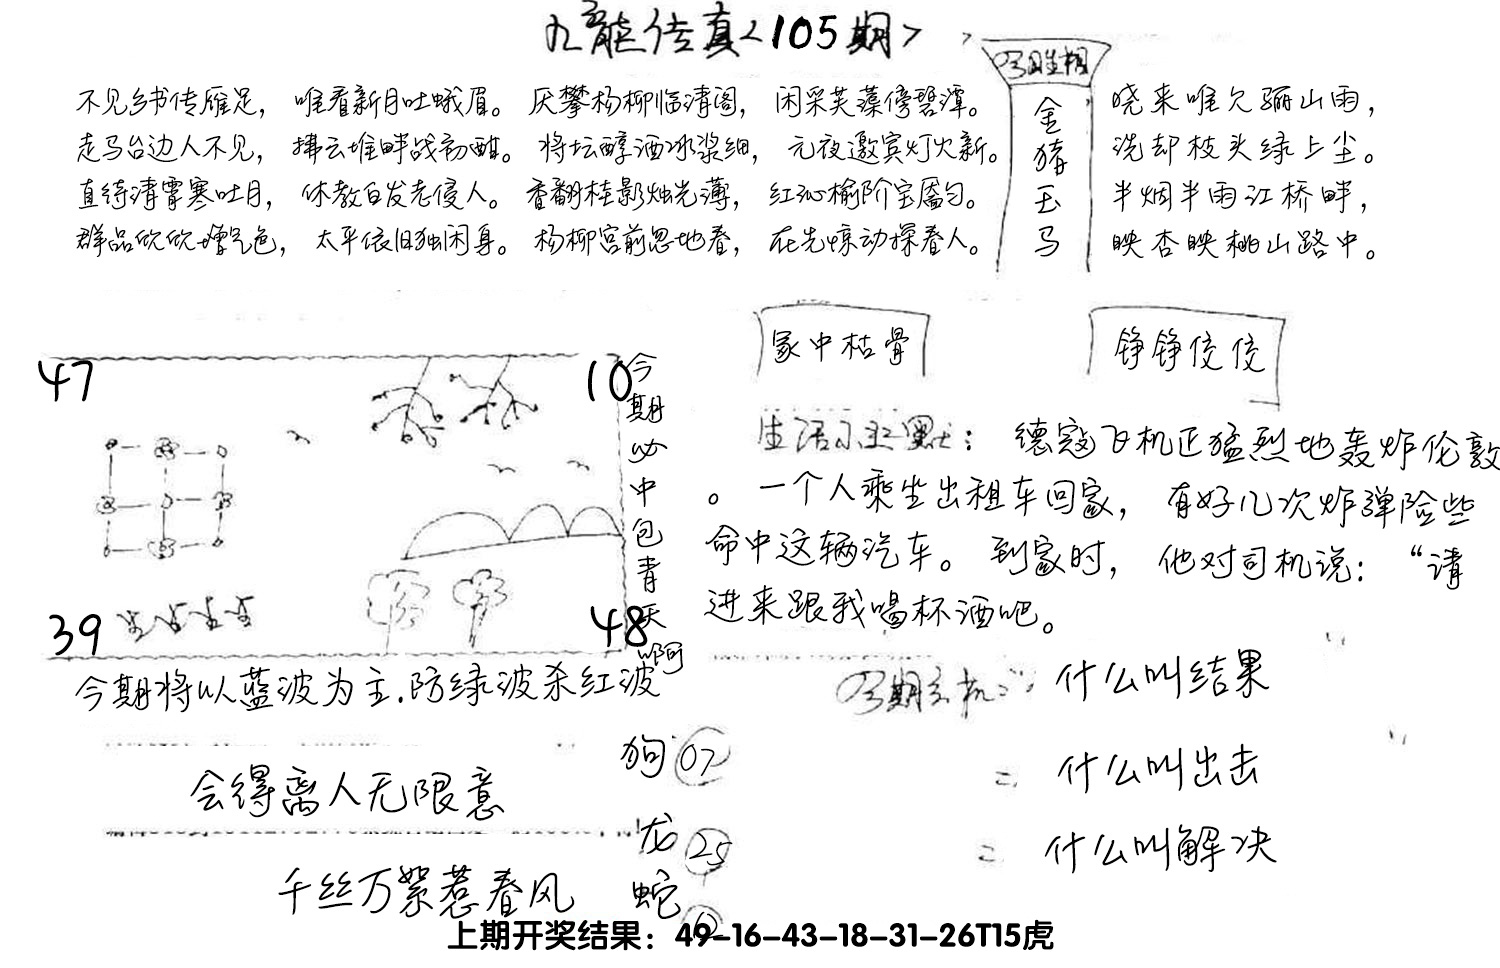 九龙传真<105期>
今期生相
金猪玉马
不见乡书传雁足，唯看新月吐蛾眉。厌攀杨柳临清阁，闲采芙蕖傍碧潭。
走马台边人不见，拂云堆畔战初酣。将坛醇酒冰浆细，元夜邀宾灯火新。
直待清霄寒吐月，休教白发老侵人。香翻桂影烛光薄，红沁榆阶宝靥匀。
群品欣欣增气色，太平依旧独闲身。杨柳宫前忽地春，在先惊动探春人。
晓来唯欠骊山雨，
洗却枝头绿上尘。
半烟半雨江桥畔，
映杏映桃山路中。
冢中枯骨
铮铮佼佼
47
10
39
48
今期必中包青天啊
生活幽默：德寇飞机正猛烈地轰炸伦敦
。一个人乘坐出租车回家，有好几次炸弹险些
命中这辆汽车。到家时，他对司机说：“请
进来跟我喝杯酒吧。
今期将以蓝波为主.防绿波杀红波
会得离人无限意
千丝万絮惹春风
狗 07
龙 25
蛇
今期玄机：什么叫结果
= 什么叫出击
= 什么叫解决
上期开奖结果：49-16-43-18-31-26T15虎